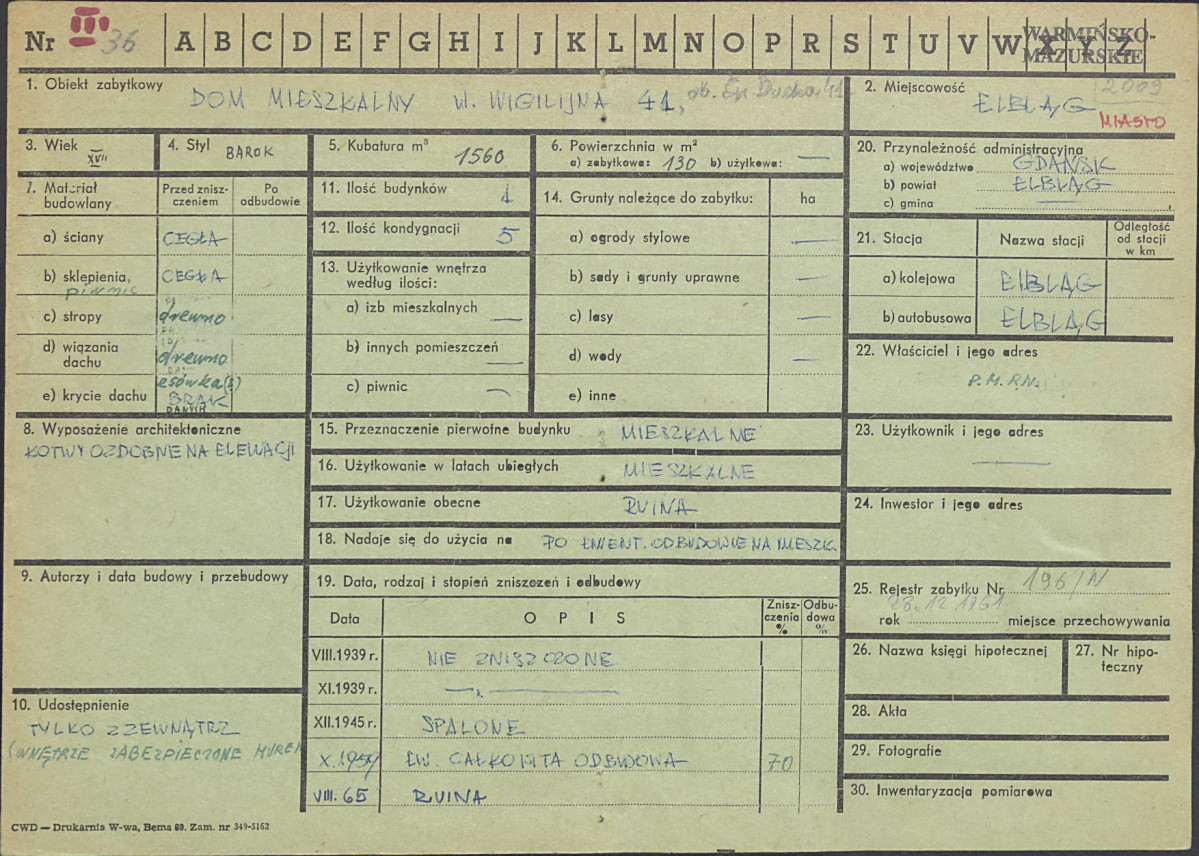 Nr III 36 A B C D E F G H I J K L M N O P R S T U V W X Y Z
WARMIŃSKO-
MAZURSKIE
1. Obiekt zabytkowy DOM MIESZKALNY ul. WIGILIJNA 41, ob. Św Ducha 41
2. Miejscowość ELBLĄG 2009
MIASTO
3. Wiek XVII
4. Styl BAROK
5. Kubatura m³ 1560
6. Powierzchnia w m²
a) zabytkowa: 130 b) użytkowa: —
7. Materiał budowlany
Przed zniszczeniem
Po odbudowie
a) ściany CEGŁA
b) sklepienia, CEGŁA
piwnic
c) stropy drewno
d) wiązania dachu drewno
esówka(?)
e) krycie dachu BRAK
DANYCH
8. Wyposażenie architektoniczne
KOTWY OZDOBNE NA ELEWACJI
9. Autorzy i data budowy i przebudowy
10. Udostępnienie
TYLKO ZZEWNĄTRZ
(WNĘTRZE ZABEZPIECZONE MUREM
11. Ilość budynków 1
12. Ilość kondygnacji 5
13. Użytkowanie wnętrza
według ilości:
a) izb mieszkalnych —
b) innych pomieszczeń —
c) piwnic —
14. Grunty należące do zabytku: ha
a) ogrody stylowe —
b) sady i grunty uprawne —
c) lasy —
d) wody —
e) inne
15. Przeznaczenie pierwotne budynku MIESZKALNE
16. Użytkowanie w latach ubiegłych MIESZKALNE
17. Użytkowanie obecne RUINA
18. Nadaje się do użycia na PO EWENT. ODBUDOWIE NA MIESZK.
19. Data, rodzaj i stopień zniszczeń i odbudowy
Data O P I S Zniszczenia % Odbudowa %
VIII.1939 r. NIE ZNISZCZONE
XI.1939 r. — „ —
XII.1945 r. SPALONE
X.1959 EW. CAŁKOWITA ODBUDOWA 70
VIII.65 RUINA
20. Przynależność administracyjna
a) województwo GDAŃSK
b) powiat ELBLĄG
c) gmina —
21. Stacja Nazwa stacji Odległość od stacji w km
a) kolejowa ELBLĄG
b) autobusowa ELBLĄG
22. Właściciel i jego adres
P.M.R.N.
23. Użytkownik i jego adres
—
24. Inwestor i jego adres
25. Rejestr zabytku Nr 196/N
23.12.1961
rok miejsce przechowywania
26. Nazwa księgi hipotecznej
27. Nr hipoteczny
28. Akta
29. Fotografie
30. Inwentaryzacja pomiarowa
CWD — Drukarnia W-wa, Bema 60. Zam. nr 349-5162